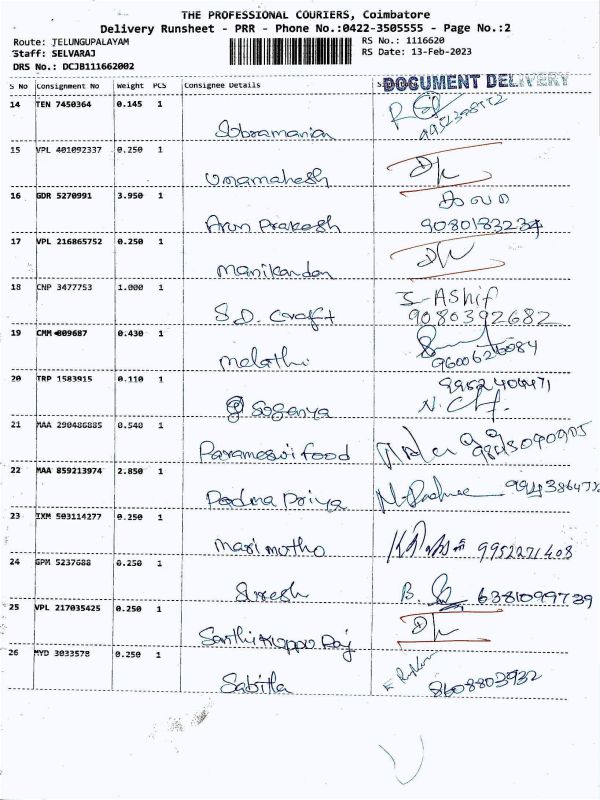 THE PROFESSIONAL COURIERS, Coimbatore
Delivery Runsheet - PRR - Phone No.:0422-3505555 - Page No.:2
Route: JELUNGUPALAYAM
RS No.: 1116620
Staff: SELVARAJ
RS Date: 13-Feb-2023
DRS No.: DCJB111662002
DOCUMENT DELIVERY
S No Consignment No Weight PCS Consignee Details
14 TEN 7450364 0.145 1
Sobramanian
15 VPL 401092337 0.250 1
Umamahesh
16 GDR 5270991 3.950 1
Arun Prakash 9080183234
17 VPL 216865752 0.250 1
Manikandan
18 CNP 3477753 1.000 1
S. Ashif
S.D. Craft 9080392682
19 CMM 809687 0.430 1
Malathi 9600626084
20 TRP 1583915 0.110 1
9952404471
Soganya
21 MAA 290486885 0.540 1
Parameswi food
22 MAA 859213974 2.850 1
Padma Priya
23 IXM 503114277 0.250 1
Mari mutho 9952271408
24 GPM 5237688 0.250 1
Suresh B. 6381099739
25 VPL 217035425 0.250 1
26 MYD 3033578 0.250 1
Sabitha 8608803932